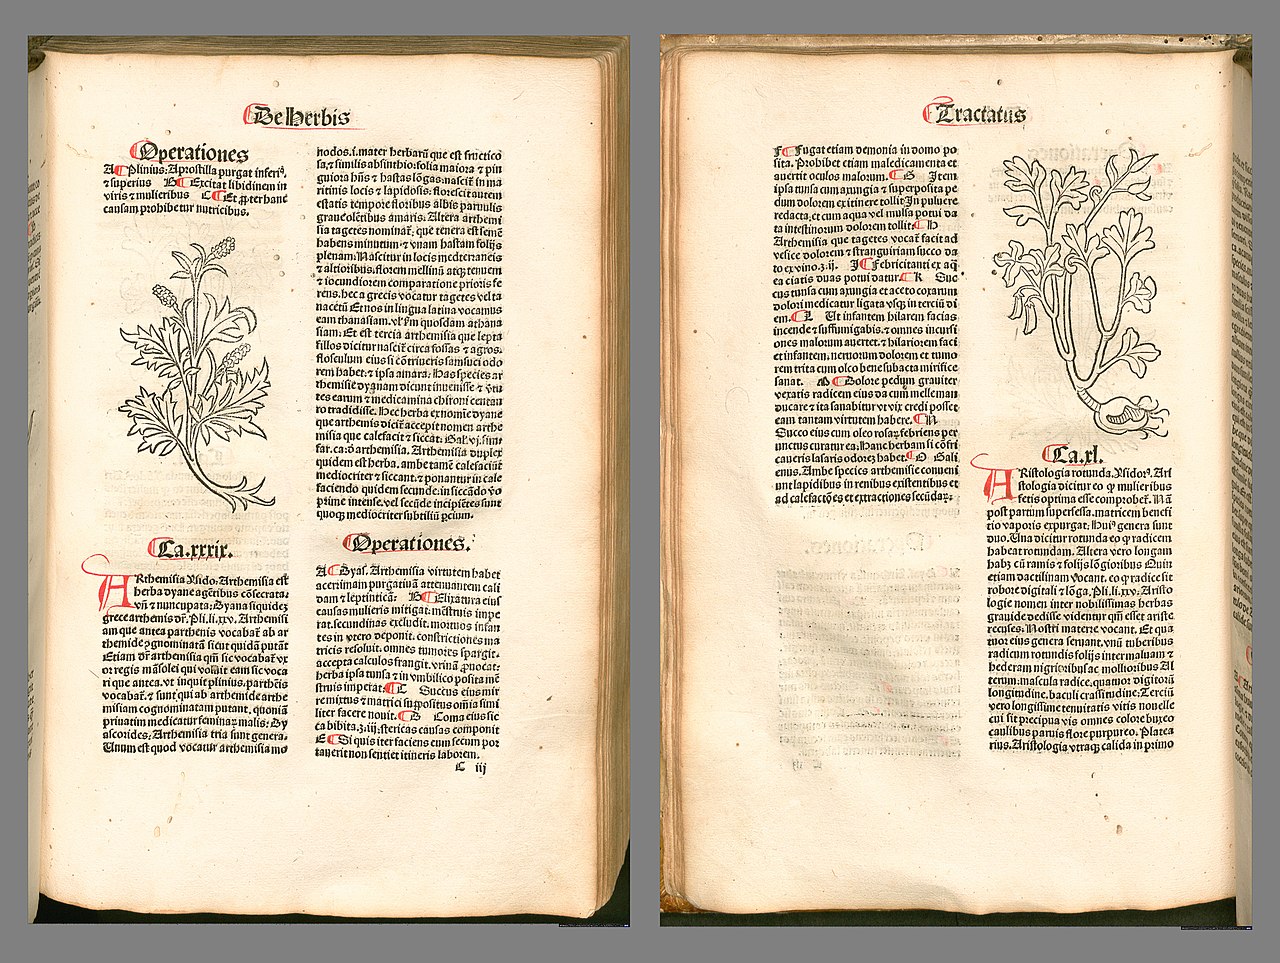 De Herbis
Operationes
A Plinius: Aprostilla purgat inferi⁹
⁊ superius B Excitat libidinem in
viris ⁊ mulieribus C Et ꝓpter hanc
causam prohibetur nutricibus.
Ca.xxxix.
ARthemisia Ysido: Arthemisia est
herba dyane agẽtibus cõsecrata:
vñ ⁊ nuncupata: Dyana siquidẽ
grece arthemis dr̃. Pli.li.xxv. Arthemisi
am que antea parthenis vocabat̃ ab ar
themide ꝓgnominatã sicut quidã putãt
Etiam dr̃ arthemisia qm̃ sic vocabat̃ vx
or regis mãsolei qui voluit eam sic voca
ri que antea. vt inquit plinius. parthẽis
vocabat̃. ⁊ sunt qui ab arthemide arthe
misiam cognominatam putant. quoniã
priuatim medicatur feminaꝝ malis: Dy
ascorides: Arthemisia tria sunt genera.
Unum est quod vocatur arthemisia mo
nodos.i. mater herbarũ que est fructico
sa. ⁊ similis absinthio: folia maiora ⁊ pin
guiora hñs ⁊ hastas lõgas: nascit̃ in ma
ritinis locis ⁊ lapidosis: florescit autem
estatis tempore floribus albis paruulis
graueolẽtibus amaris: Altera arthemi
sia tagetes nominat̃: que tenera est semẽ
habens minutum ⁊ vnam hastam folijs
plenam: Nascitur in locis mediterraneis
⁊ altioribus: florem mellinũ atqꝫ tenuem
⁊ iocundiorem comparatione prioris fe
rens. hec a grecis vocatur tagetes vel ta
nacetũ Et nos in lingua latina vocamus
eam thanasiam. vl' fm̃ quosdam athana
siam: Et est tercia arthemisia que lepta
fillos dicitur nascit̃ circa fossas ⁊ agros.
flosculum eius si cõtriueris samsuci odo
rem habet: ⁊ ipsa amara: Has species ar
themisie dyanam dicunt inuenisse ⁊ v̓tu
tes earum ⁊ medicamina chironi centau
ro tradidisse. Hec herba ex nomĩe dyane
que arthemis dicit̃ accepit nomen arthe
misia que calefacit ⁊ siccat: Gal'.vj. sim
far. ca: ð arthemisia. Arthemisia duplex
quidem est herba. ambe tamẽ calefaciũt
mediocriter ⁊ siccant. ⁊ ponantur in cale
faciendo quidem secunde. in siccãdo vo
prime intense. vel secũde incipiẽtes sunt
quoqꝫ mediocriter subtiliũ ꝑcium.
Operationes.
A Dyas. Arthemisia virtutem habet
acerrimam purgatiuã attenuantem cali
dam ⁊ leptinticã: B Elixatura eius
causas mulieris mitigat: mẽstruis impe
rat. secundinas excludit. mortuos infan
tes in vtero deponit. constrictiones ma
tricis resoluit. omnes tumores spargit.
accepta calculos frangit. vrinã ꝓuocat:
herba ipsa tunsa ⁊ in vmbilico posita mẽ
struis imperat: C Succus eius mir
re mixtus ⁊ matrici suppositus om̃ia simi
liter facere nouit. D Coma eius sic
ca bibita.ʒ.iij: stericas causas componit
E Si quis iter faciens eum secum por
tauerit non sentiet itineris laborem.
C iij
Tractatus
F Fugat etiam demonia in domo po
sita. Prohibet etiam maledicamenta et
auertit oculos malorum. G Item
ipsa tunsa cum axungia ⁊ superposita pe
dum dolorem ex itinere tollit In puluere
redacta: et cum aqua vel mulsa potui da
ta intestinorum dolorem tollit: H
Arthemisia que tagetes vocat̃ facit ad
vesice dolorem ⁊ stranguiriam succo da
to ex vino.ʒ.ij. I Febricitanti ex aq̃
ea ciatis duas potui datur. K Suc
cus tunsa cum axungia et aceto coxarum
dolori medicatur ligata vsqꝫ in terciũ di
em. L Ut infantem hilarem facias
incende ⁊ suffumigabis: ⁊ omnes incursi
ones malorum auertet: ⁊ hilariorem faci
et infantem. neruorum dolorem et tumo
rem trita cum oleo bene subacta mirifice
sanat. M Dolore pedum grauiter
vexatis radicem eius da cum melle man
ducare ⁊ ita sanabitur vt vix credi posset
eam tantam virtutem habere. N
Succo eius cum oleo rosaꝝ febriens per
unctus curatur ea: Hanc herbam si cõfri
caueris lasaris odorẽ habet. O Gali
enus. Ambe species arthemisie conueni
unt lapidibus in renibus existentibus et
ad calefactões et extractiones secũdaꝝ.
Ca.xl.
ARistologia rotunda. Ysidor⁹. Ari
stologia dicitur eo ꝙ mulieribus
fetis optima esse comprobet̃. Nã
post partum supersessa. matricem benefi
tio vaporis expurgat: Hui⁹ genera sunt
duo. Una dicitur rotunda eo ꝙ radicem
habeat rotundam. Altera vero longam
habꝫ cũ ramis ⁊ folijs lõgioribus Quin
etiam dactilinam vocant. eo ꝙ radice sit
robore digitali ⁊ lõga. Pli.li.xxv: Aristo
logie nomen inter nobilissimas herbas
grauide dedisse videntur qm̃ esset ariste
recuses: Nostri materie vocant. Et qua
tuor eius genera seruant. vnũ tuberibus
radicum rotundis folijs inter maluam ⁊
hederam nigrioribus ac mollioribus Al
terum: mascula radice. quatuor digitorũ
longitudine. baculi crassitudine: Terciũ
vero longissime tenuitatis vitis nouelle
cui sit precipua vis omnes colore buxeo
caulibus paruis flore purpureo. Platea
rius. Aristologia vtraqꝫ calida in primo